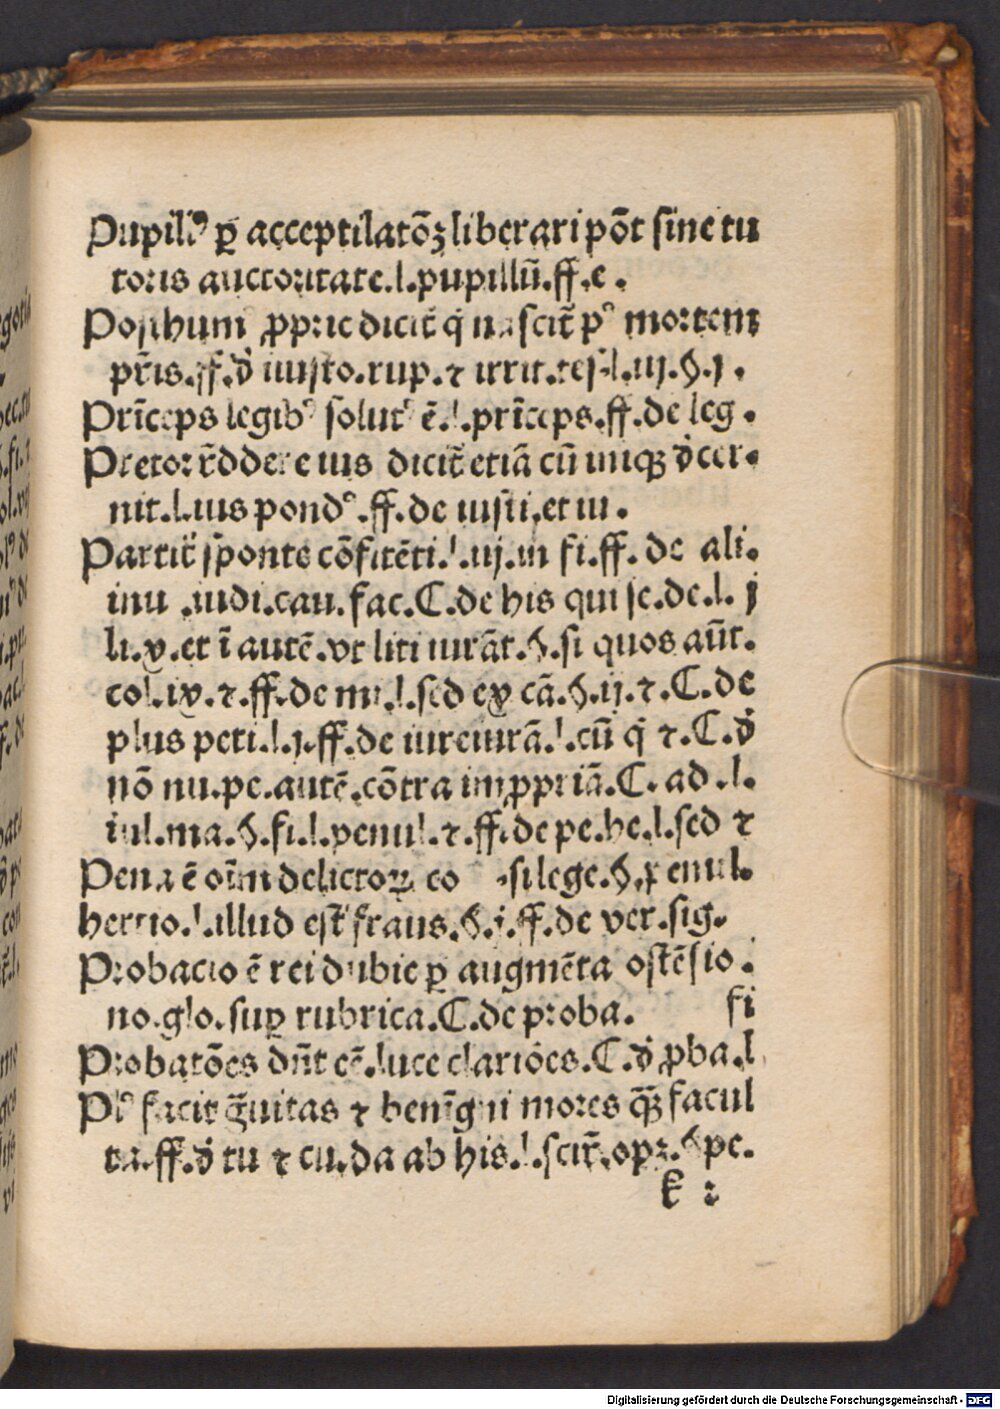 Pupill⁹ ꝑ acceptilatõꝫ liberari põt sine tu
toris auctoritate.l.pupillũ.ff.e.
Posthum ꝓprie dicit̃ q̇ nascit̃ pꝰ mortem
pr̃is.ff.ḋ iniusto.rup.⁊ irrit.tes.l.iij.§.j.
Prĩceps legibꝰ solutꝰ ẽ.l.prĩceps.ff.de leg.
Pretor r̃ddere ius dicit̃ etiã cũ iniqꝫ ḋcer-
nit.l.ius pondꝰ.ff.de iusti.et iu.
Partit̃ sponte cõfitẽti.l.ij.in fi.ff.de ali.
inu .iudi.cau.fac.C.de his qui se.de.l.j
li.x.et ĩ autẽ.vt liti iurãt.§.si quos aũt.
col.ix.⁊.ff.de mi.l.sed ex cã.§.ij.⁊.C.de
plus peti.l.j.ff.de iureiurã.l.cũ q̇ ⁊.C.ḋ
nõ nu.pe.autẽ.cõtra impꝓpriã.C.ad.l.
iul.ma.§.fi.l.penul.⁊.ff.de pe.he.l.sed ⁊
Pena ẽ oĩm delictoꝝ eo si lege.§.penul.
hertio.l.illud est̃ fraus.§.j.ff.de ver.sig.
Probacio ẽ rei dubie ꝑ augmẽta ostẽsio.
no.glo.suꝑ rubrica.C.de proba. fi
Probatões dñt eẽ.luce clariões.C.ḋ ꝓba.l
Plꝰ facit g̃uitas ⁊ benĩgni mores qꝫ̃ facul
ta.ff.ḋ tu ⁊ cu.da ab his.l.scir̃.opꝫ.§ pe.
k 2
Digitalisierung gefördert durch die Deutsche Forschungsgemeinschaft - DFG